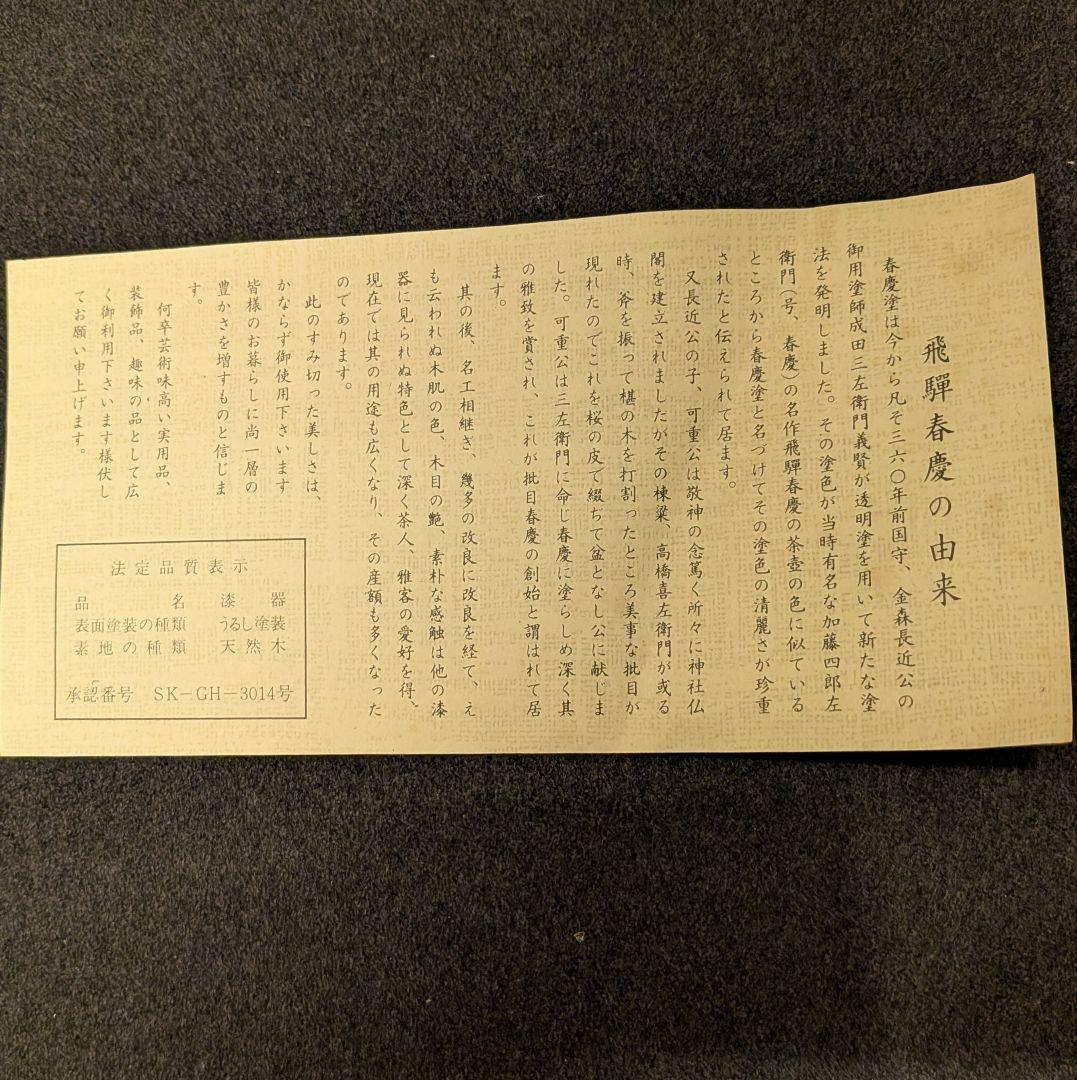 飛驒春慶の由来
春慶塗は今から凡そ三六〇年前国守、金森長近公の
御用塗師成田三左衛門義賢が透明塗を用いて新たな塗
法を発明しました。その塗色が当時有名な加藤四郎左
衛門(号、春慶)の名作飛驒春慶の茶壺の色に似ている
ところから春慶塗と名づけてその塗色の清麗さが珍重
されたと伝えられて居ます。
又長近公の子、可重公は敬神の念篤く所々に神社仏
閣を建立されましたがその棟梁、高橋喜左衛門が或る
時、斧を振って椹の木を打割ったところ美事な批目が
現れたのでこれを桜の皮で綴ぢて盆となし公に献じま
した。可重公は三左衛門に命じ春慶に塗らしめ深く其
の雅致を賞され、これが批目春慶の創始と謂はれて居
ます。
其の後、名工相継ぎ、幾多の改良に改良を経て、え
も云われぬ木肌の色、木目の艶、素朴な感触は他の漆
器に見られぬ特色として深く茶人、雅客の愛好を得、
現在では其の用途も広くなり、その産額も多くなった
のであります。
此のすみ切った美しさは、
かならず御使用下さいます
皆様のお暮らしに尚一層の
豊かさを増すものと信じま
す。
何卒芸術味高い実用品、
装飾品、趣味の品として広
く御利用下さいます様伏し
てお願い申上げます。
法定品質表示
品名 漆器
表面塗装の種類 うるし塗装
素地の種類 天然木
承認番号 SK-GH-3014号